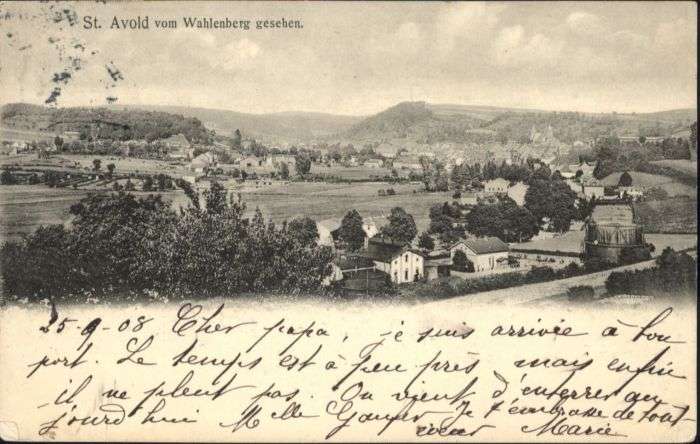 St. Avold vom Wahlenberg gesehen.
25-9-08 Cher papa, je suis arrivée à bon
port. Le temps est à peu près mais enfin
il ne pleut pas. On vient d'enterrer au
jourd'hui Melle. Je t'embrasse de tout
cœur Marie